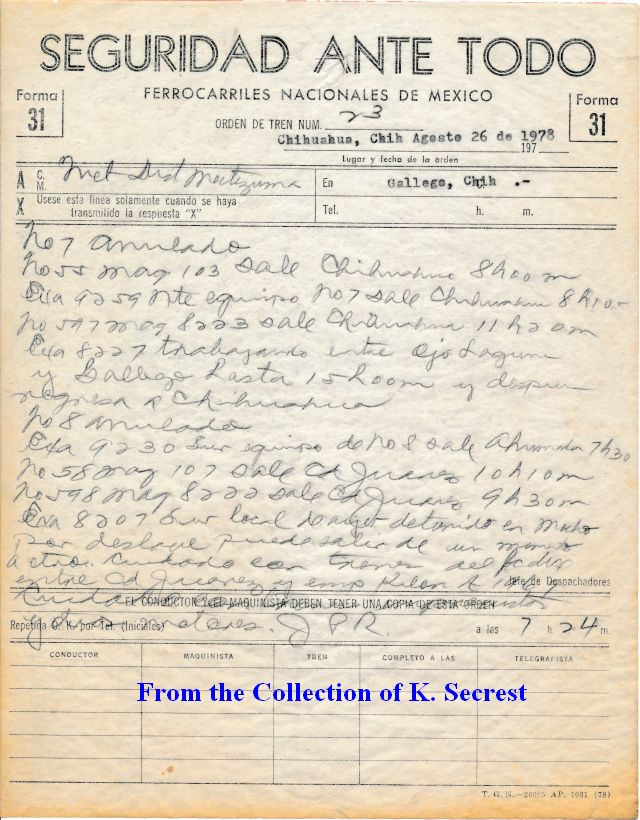 SEGURIDAD ANTE TODO
Forma
31
FERROCARRILES NACIONALES DE MEXICO
Forma
31
ORDEN DE TREN NUM. 23
Chihuahua, Chih Agosto 26 de 1978
197
Lugar y fecha de la orden
A C. M.
En Gallego, Chih .-
X Usese esta línea solamente cuando se haya
transmitido la respuesta "X"
Tel. h. m.
No 7 anulado
No 55 maq 103 sale Chihuahua 8h00m
Exa 9259 Nte equipo No 7 sale Chihuahua 8h10m
No 597 maq 8223 sale Chihuahua 11h20m
Exa 8227 trabajando entre Ojo Laguna
y Gallego hasta 15h00m y despues
regresa a Chihuahua
No 8 anulado
Exa 9230 Sur equipo de No 8 sale Ahumada 7h30
No 58 maq 107 sale Cd Juarez 10h10m
No 598 maq 8222 sale Cd Juarez 9h30m
Exa 8207 Sur local detenido en
por deslave puede salir de un momento
a otro. Cuidado con trenes del
entre Cd Juarez y emp
Jefe de Despachadores
Cuidado
EL CONDUCTOR Y EL MAQUINISTA DEBEN TENER UNA COPIA DE ESTA ORDEN
Repetida O. K. por Tel. (Iniciales) JPR. a las 7 h. 24 m.
CONDUCTOR MAQUINISTA TREN COMPLETO A LAS TELEGRAFISTA
From the Collection of K. Secrest
T. G. N.—26085 AP. 1031 (78)